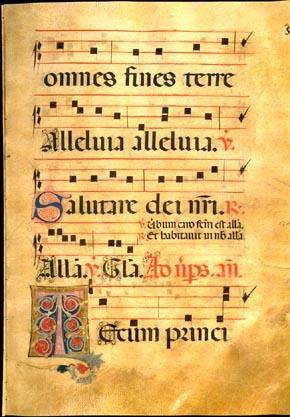 omnes fines terre
Alleluia alleluia. ℣.
Salutare dei nr̄i. ℟.
℣ Uerbum caro fcm̄ est alla.
℟ Et habitauit in nob̄ alla.
Alla. ℣. Gl̄a. Ad ūps. an̄.
Tecum princi